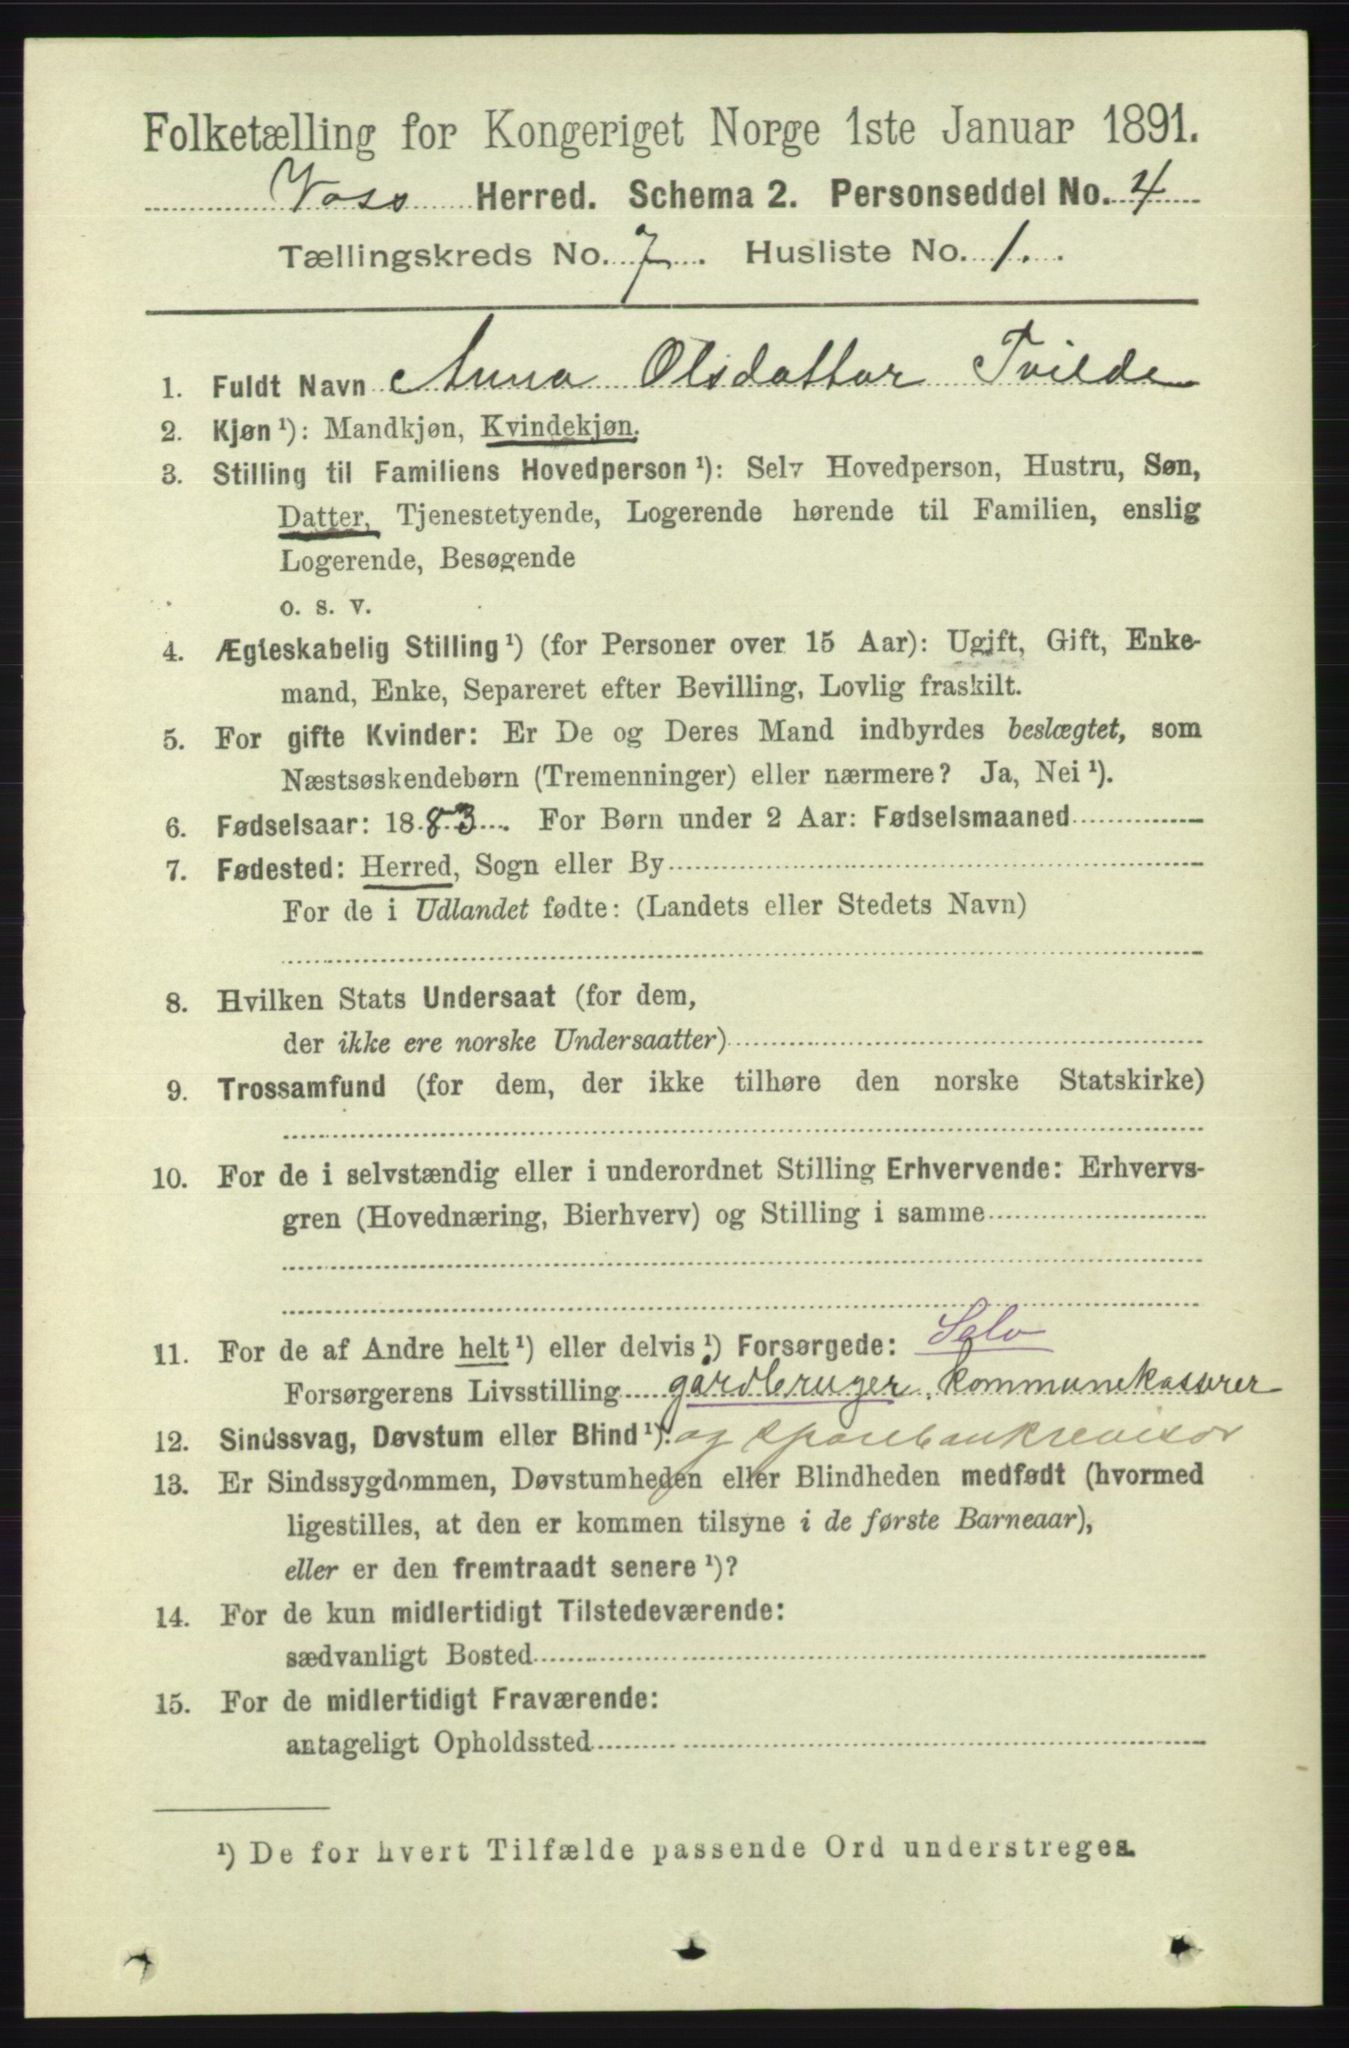 Folketælling for Kongeriget Norge 1ste Januar 1891.
Voss Herred. Schema 2. Personseddel No. 4
Tællingskreds No. 7. Husliste No. 1.
1. Fuldt Navn Anna Olsdatter Tvilde
2. Kjøn ¹): Mandkjøn, Kvindekjøn.
3. Stilling til Familiens Hovedperson ¹): Selv Hovedperson, Hustru, Søn,
Datter, Tjenestetyende, Logerende hørende til Familien, enslig
Logerende, Besøgende
o. s. v.
4. Ægteskabelig Stilling ¹) (for Personer over 15 Aar): Ugift, Gift, Enke-
mand, Enke, Separeret efter Bevilling, Lovlig fraskilt.
5. For gifte Kvinder: Er De og Deres Mand indbyrdes beslægtet, som
Næstsøskendebørn (Tremenninger) eller nærmere? Ja, Nei ¹).
6. Fødselsaar: 1883. For Børn under 2 Aar: Fødselsmaaned
7. Fødested: Herred, Sogn eller By
For de i Udlandet fødte: (Landets eller Stedets Navn)
8. Hvilken Stats Undersaat (for dem,
der ikke ere norske Undersaatter)
9. Trossamfund (for dem, der ikke tilhøre den norske Statskirke)
10. For de i selvstændig eller i underordnet Stilling Erhvervende: Erhvervs-
gren (Hovednæring, Bierhverv) og Stilling i samme
Selv
11. For de af Andre helt ¹) eller delvis ¹) Forsørgede:
Forsørgerens Livsstilling gårdbruger, kommunekasserer
12. Sindssvag, Døvstum eller Blind ¹): og sparebankrevisor
13. Er Sindssygdommen, Døvstumheden eller Blindheden medfødt (hvormed
ligestilles, at den er kommen tilsyne i de første Barneaar),
eller er den fremtraadt senere ¹)?
14. For de kun midlertidigt Tilstedeværende:
sædvanligt Bosted
15. For de midlertidigt Fraværende:
antageligt Opholdssted
¹) De for hvert Tilfælde passende Ord understreges.